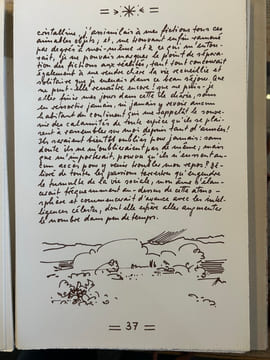 cristalline, j'assimilais à mes fictions tous ces
aimables objets, et, me trouvant enfin ramené
par degrés à moi-même et à ce qui m'entou-
rait, je ne pouvais marquer le point de sépara-
tion des fictions aux réalités, tant tout concourait
également à me rendre chère la vie recueillie et
solitaire que je menais dans ce beau séjour. Que
ne peut-elle renaître encore! que ne puis-je
aller finir mes jours dans cette île chérie, sans
en ressortir jamais, ni jamais y revoir aucun
habitant du continent qui me rappelât le souve-
nir des calamités de toute espèce qu'ils se plai-
sent à rassembler sur moi depuis tant d'années!
Ils seraient bientôt oubliés pour jamais: sans
doute ils ne m'oublieraient pas de même; mais
que m'importerait, pourvu qu'ils n'eussent au-
cun accès pour y venir troubler mon repos? Dé-
livré de toutes les passions terrestres qu'engendre
le tumulte de la vie sociale, mon âme s'élan-
cerait fréquemment au-dessus de cette atmo-
sphère et commercerait d'avance avec les intel-
ligences célestes, dont elle espère aller augmenter
le nombre dans peu de temps.
= 37 =